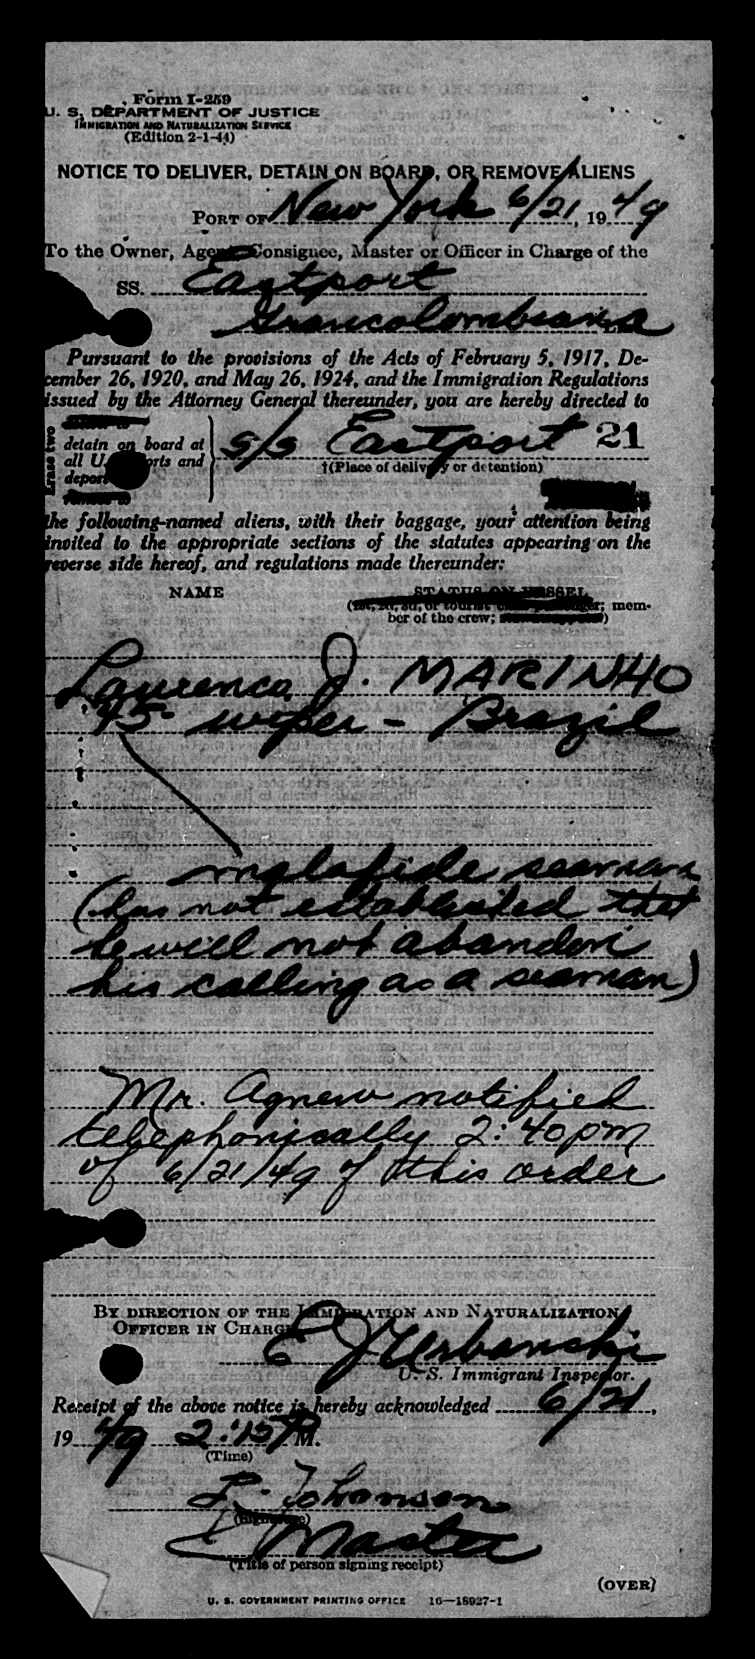 Form I-259
U. S. DEPARTMENT OF JUSTICE
IMMIGRATION AND NATURALIZATION SERVICE
(Edition 2-1-44)
NOTICE TO DELIVER, DETAIN ON BOARD, OR REMOVE ALIENS
PORT OF New York 6/21, 1949
To the Owner, Agent, Consignee, Master or Officer in Charge of the
SS. Eastport
Grancolombiana
Pursuant to the provisions of the Acts of February 5, 1917, De-
cember 26, 1920, and May 26, 1924, and the Immigration Regulations
issued by the Attorney General thereunder, you are hereby directed to
Erase two
detain on board at
all U. ports and
deport
S/S Eastport 21
†(Place of delivery or detention)
the following-named aliens, with their baggage, your attention being
invited to the appropriate sections of the statutes appearing on the
reverse side hereof, and regulations made thereunder:
NAME
STATUS ON VESSEL
(1st, 2d, 3d, or tourist class passenger; mem-
ber of the crew;)
Laurenca J. MARINHO
45 wiper - Brazil
malafide seaman
(has not established that
he will not abandon
his calling as a seaman)
Mr. Agnew notified
telephonically 2:40pm
of 6/21/49 of this order
BY DIRECTION OF THE IMMIGRATION AND NATURALIZATION
OFFICER IN CHARGE
E J Urbanski
U. S. Immigrant Inspector.
Receipt of the above notice is hereby acknowledged 6/21,
1949 2:15 P M.
(Time)
L. Johansen
(Signature)
Master
(Title of person signing receipt)
(OVER)
U. S. GOVERNMENT PRINTING OFFICE 16—18927-1